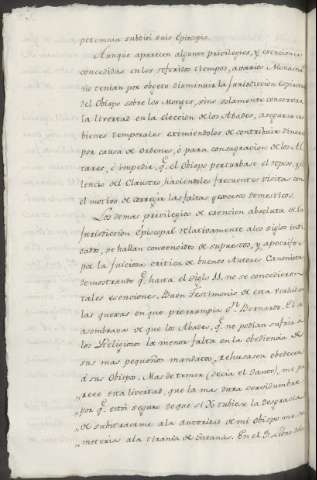 permaia subdivi suis Episcopis.
Aunque aparecen algunos privilegios, y esenciones
concedidas en los referidos tiempos, a varios Monast
no tenian por objeto disminuir la Jurisdiccion
del Obispo sobre los Monges, sino solamente conservar
la libertad en la eleccion de los Abades, asegurar
bienes temporales eximiendoles de contribuir
por causa de Ordenes, ó para consagracion de los Al
tares, é impedir, q.e el Obispo perturbase el reposo, y
lencio del Claustro haciendoles frecuentes visitas con
el motivo de corregir las faltas y excesos domesticos.
Los demas privilegios de esencion absoluta de la
Jurisdiccion Episcopal relativamente a los siglos
se hallan convencidos de supuestos, y apocrifos
por la juiciosa critica de buenos Autores
demostrando q.e hasta el siglo 11. no se concedieron
tales esenciones. Buen Testimonio de esta verdad
las quexas en que prorrumpia S.n Bernardo. El
asombrava de que los Abades, q.e no podian sufrir
los Religiosos la menor falta en la obediencia de
sus mas pequeños mandatos, rehusasen obedecer
á sus Obispos. Mas de temer (decia el Santo), me pa
„rece esta libertad, que la mas dura servidumbre,
„por q.e estoi seguro de que si Yo tubiese la desgracia
„de substraerme a la autoridad de mi Obispo me so
„meteria a la tirania de Satanas. En el